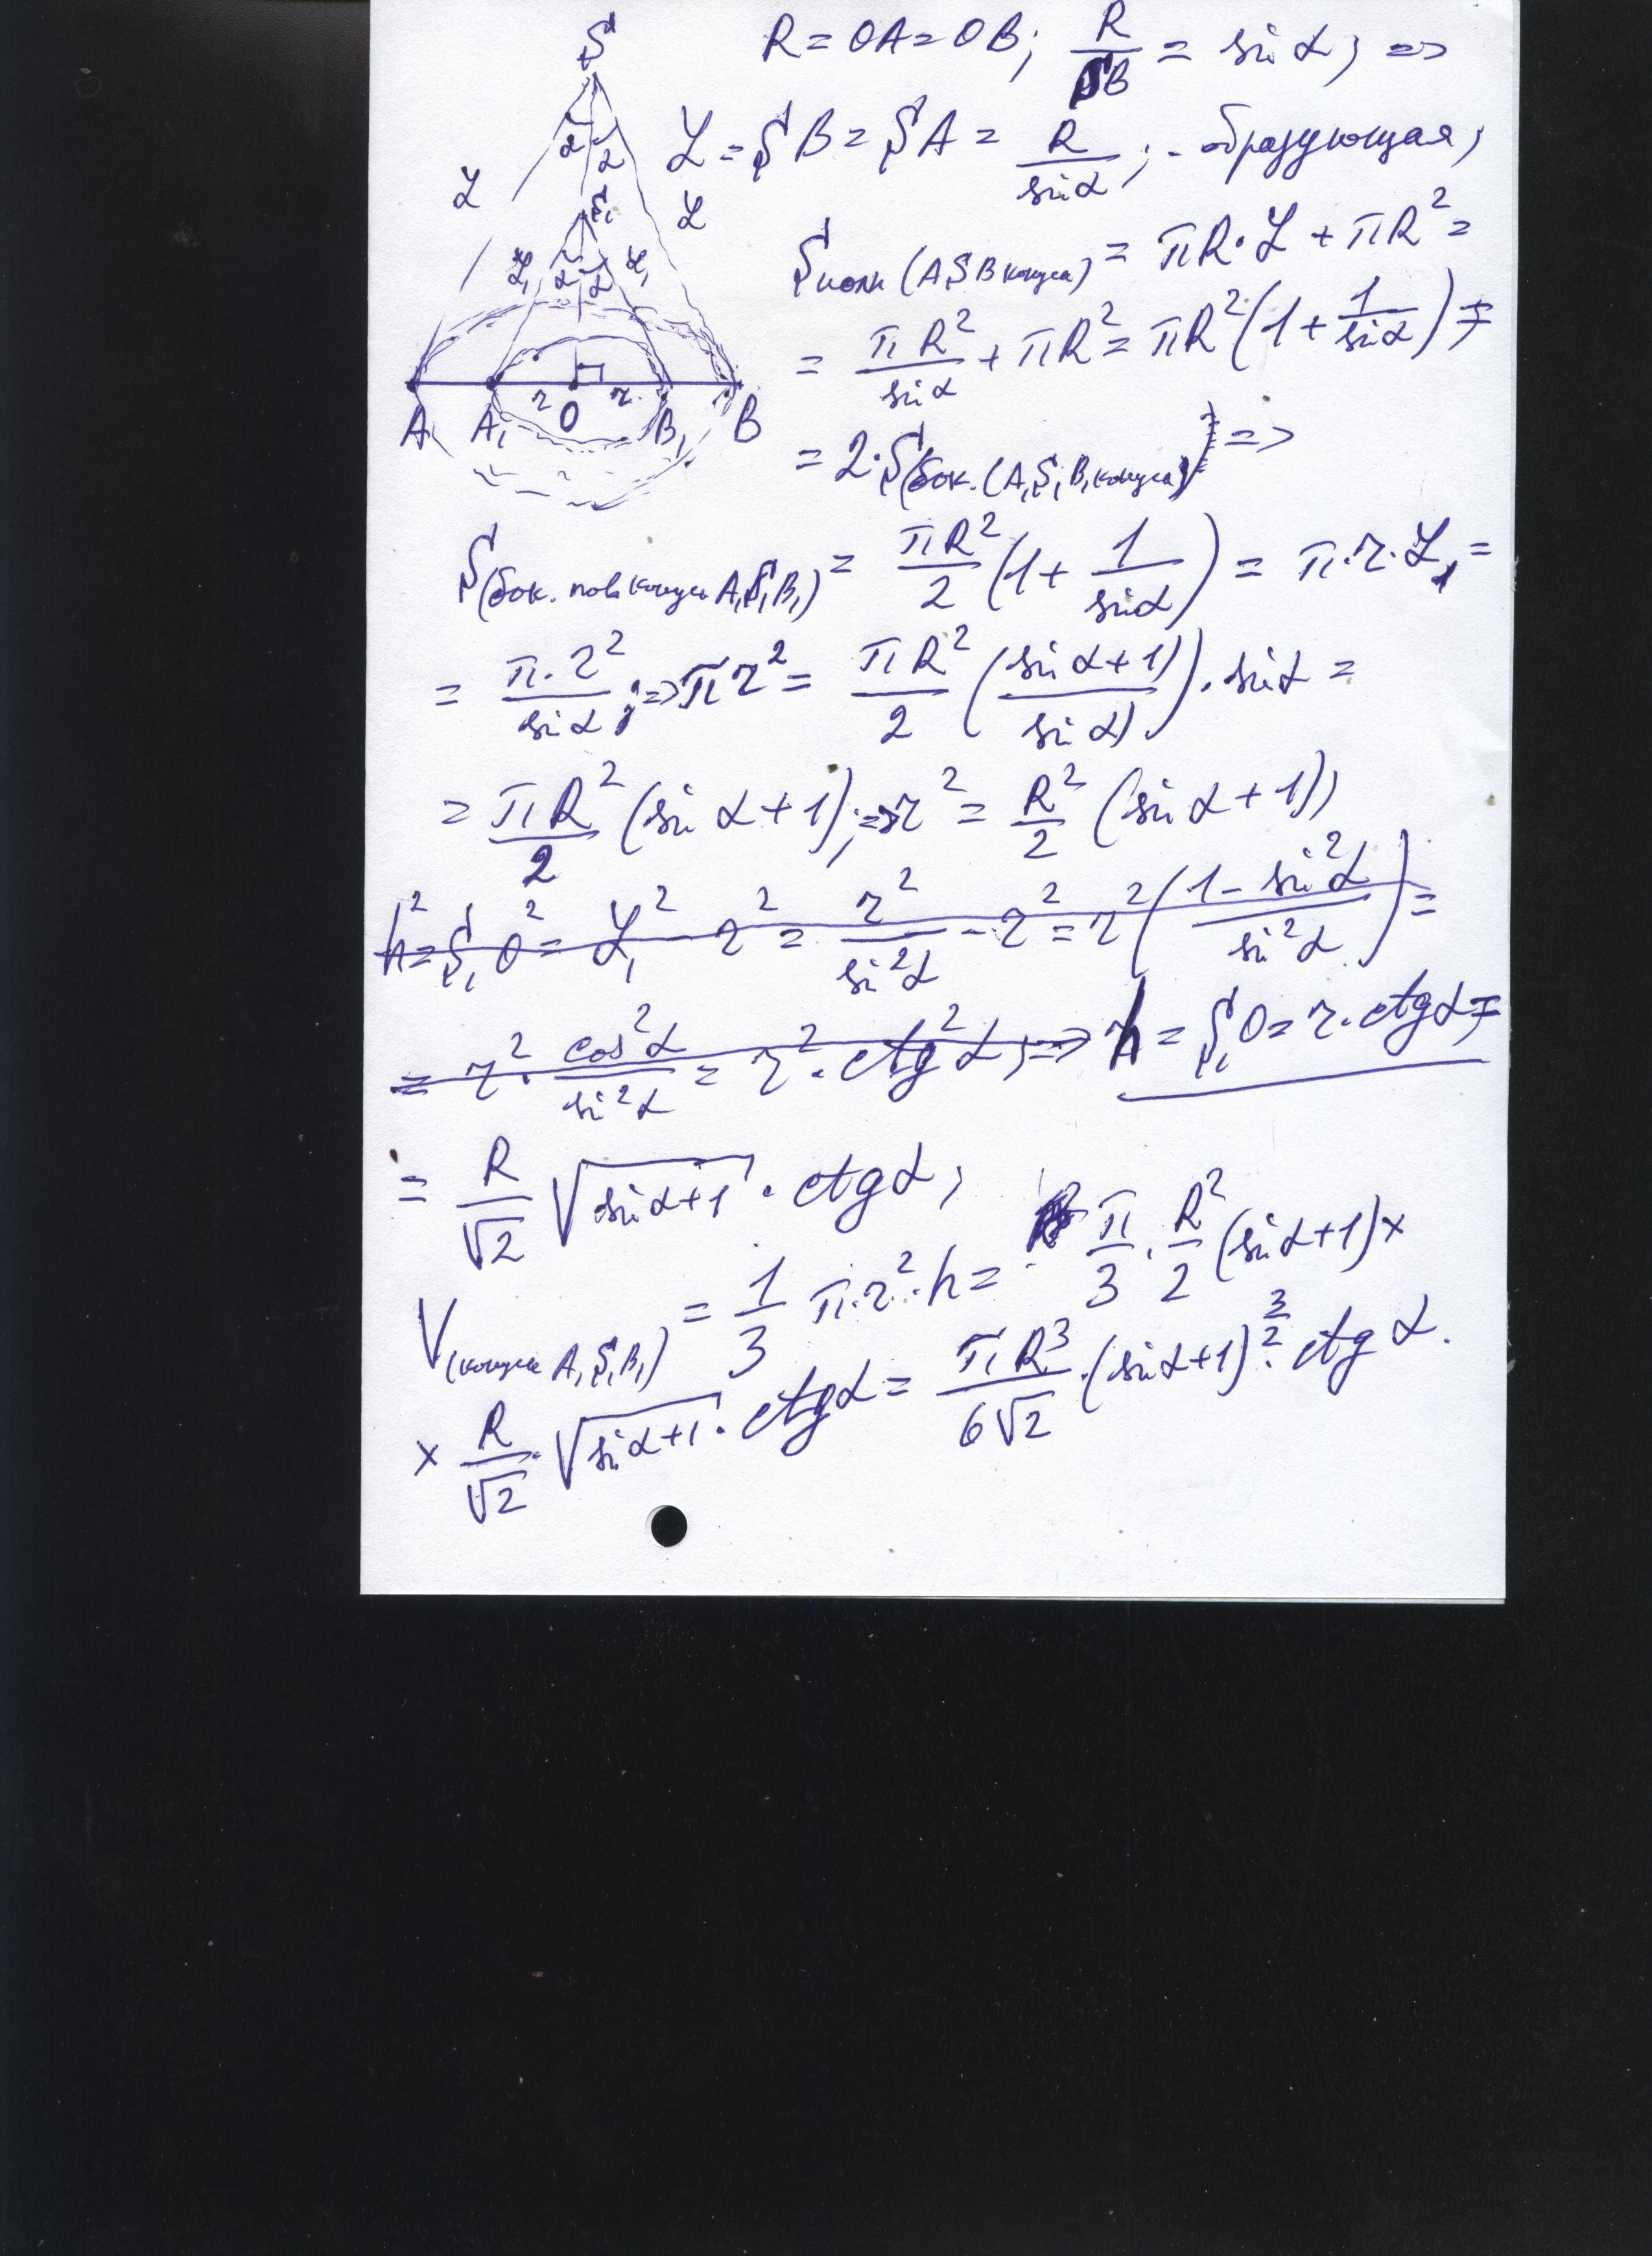 S
α α
L
L
S₁
L₁ α α L₁
r O r
A A₁ B₁ B
R = OA = OB; R/SB = sin α; =>
L = SB = SA = R/sin α; - образующая;
S полн (ASB конуса) = πR·L + πR² =
= πR²/sin α + πR² = πR²(1 + 1/sin α) =
= 2·S(бок. (A₁S₁B₁ конуса)) =>
S(бок. пов конуса A₁S₁B₁) = πR²/2 (1 + 1/sin α) = π·r·L₁ =
= π·r²/sin α; => πr² = πR²/2 ((sin α + 1)/sin α)·sin α =
= πR²/2 (sin α + 1); => r² = R²/2 (sin α + 1);
h² = S₁O² = L₁² - r² = r²/sin²α - r² = r²((1 - sin²α)/sin²α) =
= r²·cos²α/sin²α = r²·ctg²α; => h = S₁O = r·ctg α =
= R/√2 √(sin α + 1)·ctg α;
V(конуса A₁S₁B₁) = 1/3 π·r²·h = π/3·R²/2 (sin α + 1) ×
× R/√2·√(sin α + 1)·ctg α = πR³/6√2·(sin α + 1)^(3/2)·ctg α.